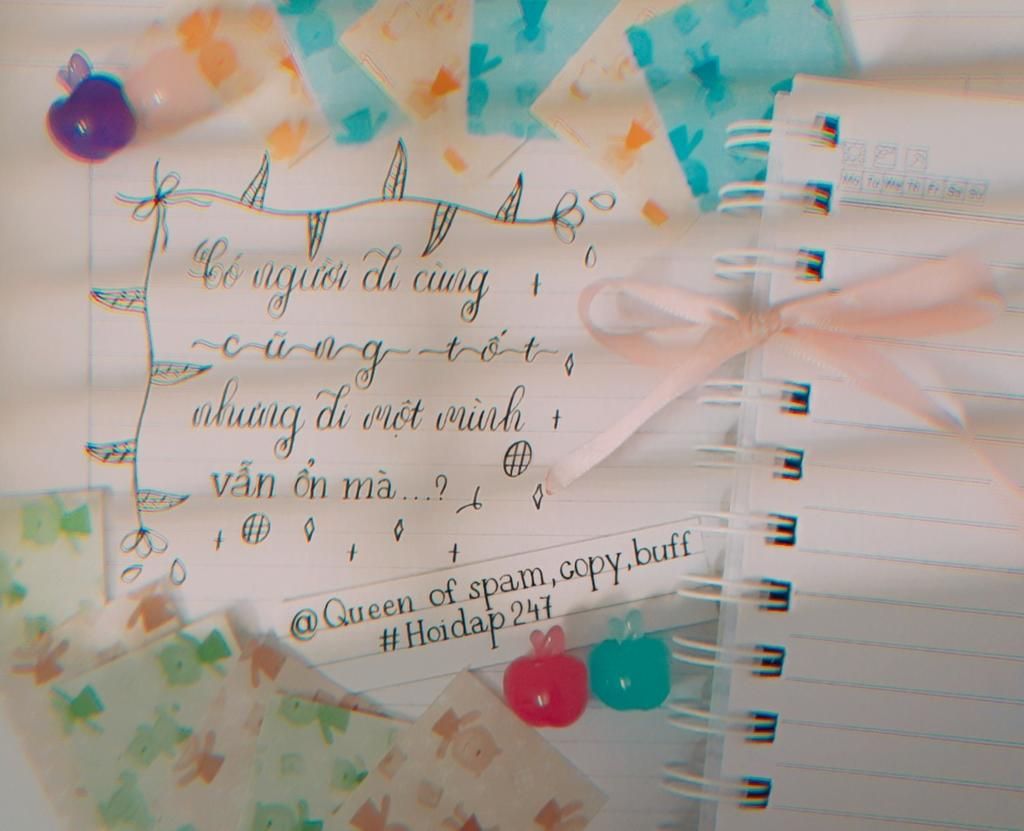 “Có người đi cùng
cũng tốt
nhưng đi một mình
vẫn ổn mà...?
@Queen of spam,copy,buff
#Hoidap247
Mo Tu We Th Fr Sa Su